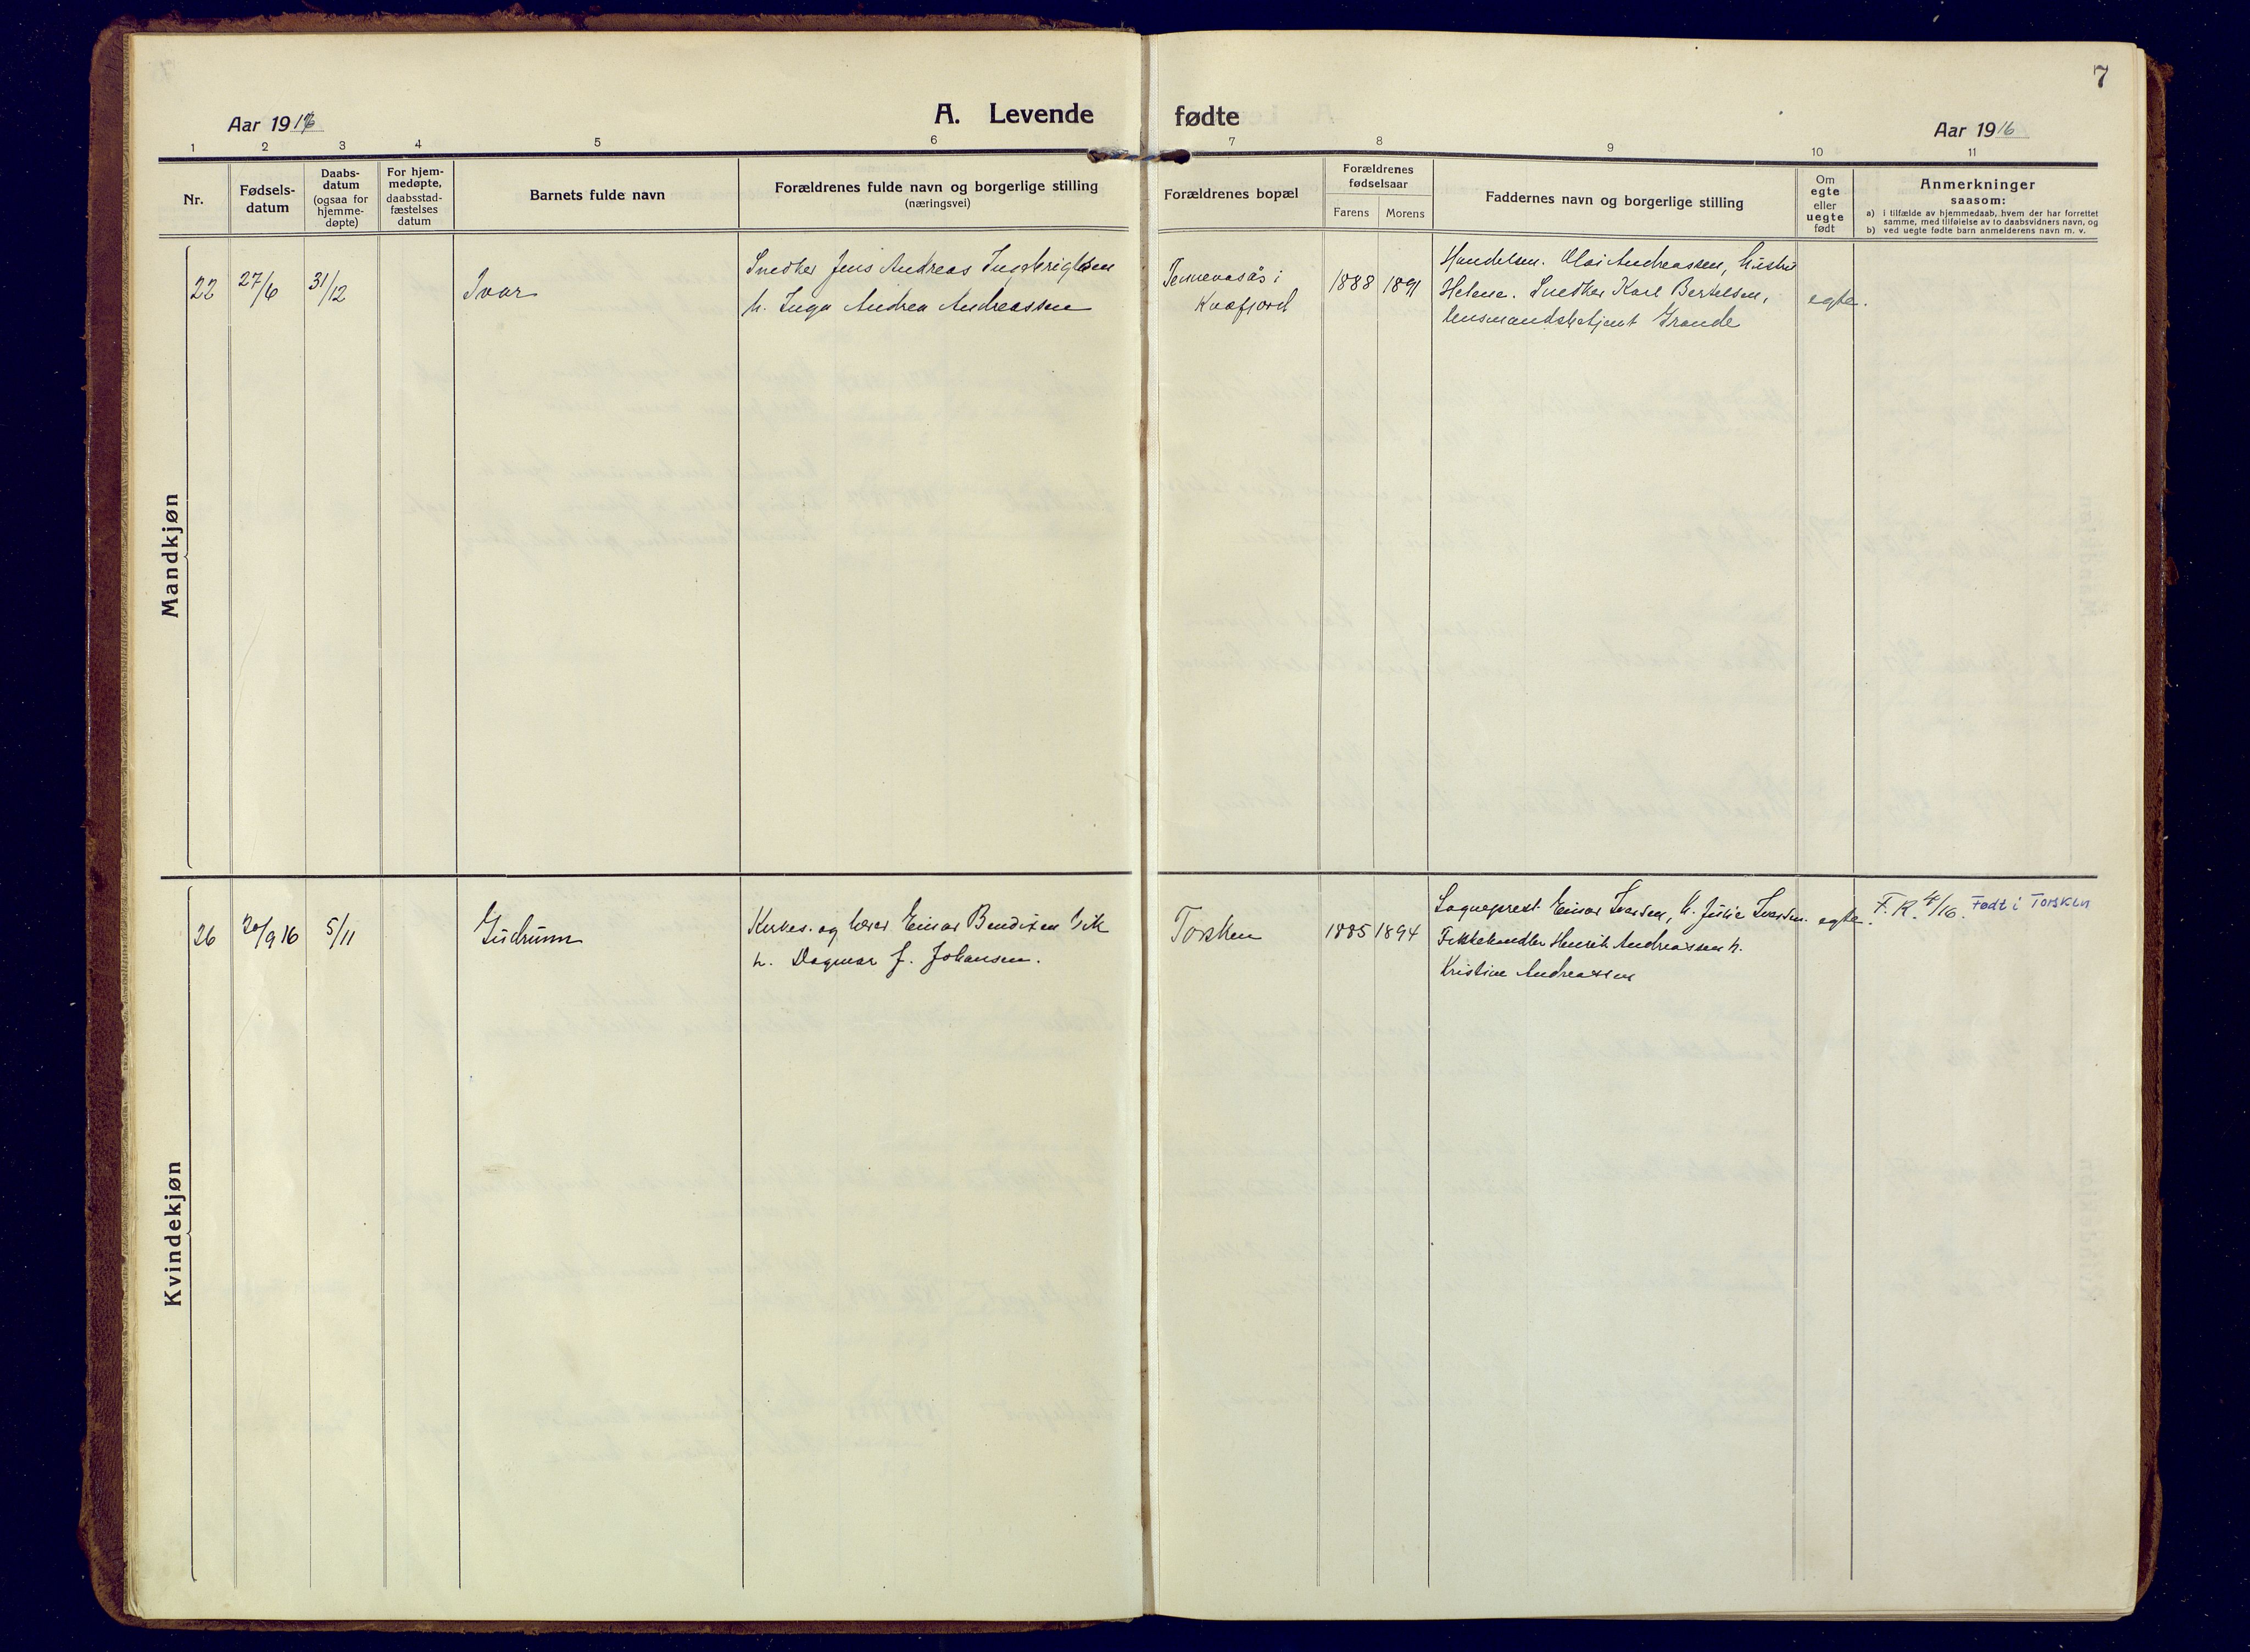 7
Aar 1916
A. Levende fødte
Aar 1916
1 2 3 4 5 6 7 8 9 10 11
Nr.
Fødsels-
datum
Daabs-
datum
(ogsaa for
hjemme-
døpte)
For hjem-
medøpte,
daabsstad-
fæstelses
datum
Barnets fulde navn
Forældrenes fulde navn og borgerlige stilling
(næringsvei)
Forældrenes bopæl
Forældrenes
fødselsaar
Farens Morens
Faddernes navn og borgerlige stilling
Om
egte
eller
uegte
født
Anmerkninger
saasom:
a) i tilfælde av hjemmedaab, hvem der har forrettet
samme, med tilføielse av to daabsvidners navn, og
b) ved uegte fødte barn anmelderens navn m. v.
Mandkjøn
22 27/6 31/12 Ivar
Snedker Jens Andreas
h. Inga Andrea Andreassen
i
Kaafjord
1888 1891
Handelsm. Olai Andreassen, hustru
Helene. Snedker Karl Bertelsen,
lensmandsbetjent Grande
egte.
Kvindekjøn
26 20/9 16 5/11 Gudrunn
Kirkes. og lærer Einar Bendixen Vik
h. Dagmar J. Johansen.
Torsken
1885 1894
Sogneprest Einar Iversen, h. Julie Iversen.
Fiskehandler Henrik Andreassen h.
Kristine Andreassen
egte.
F. R. 4/16. Født i Torsken